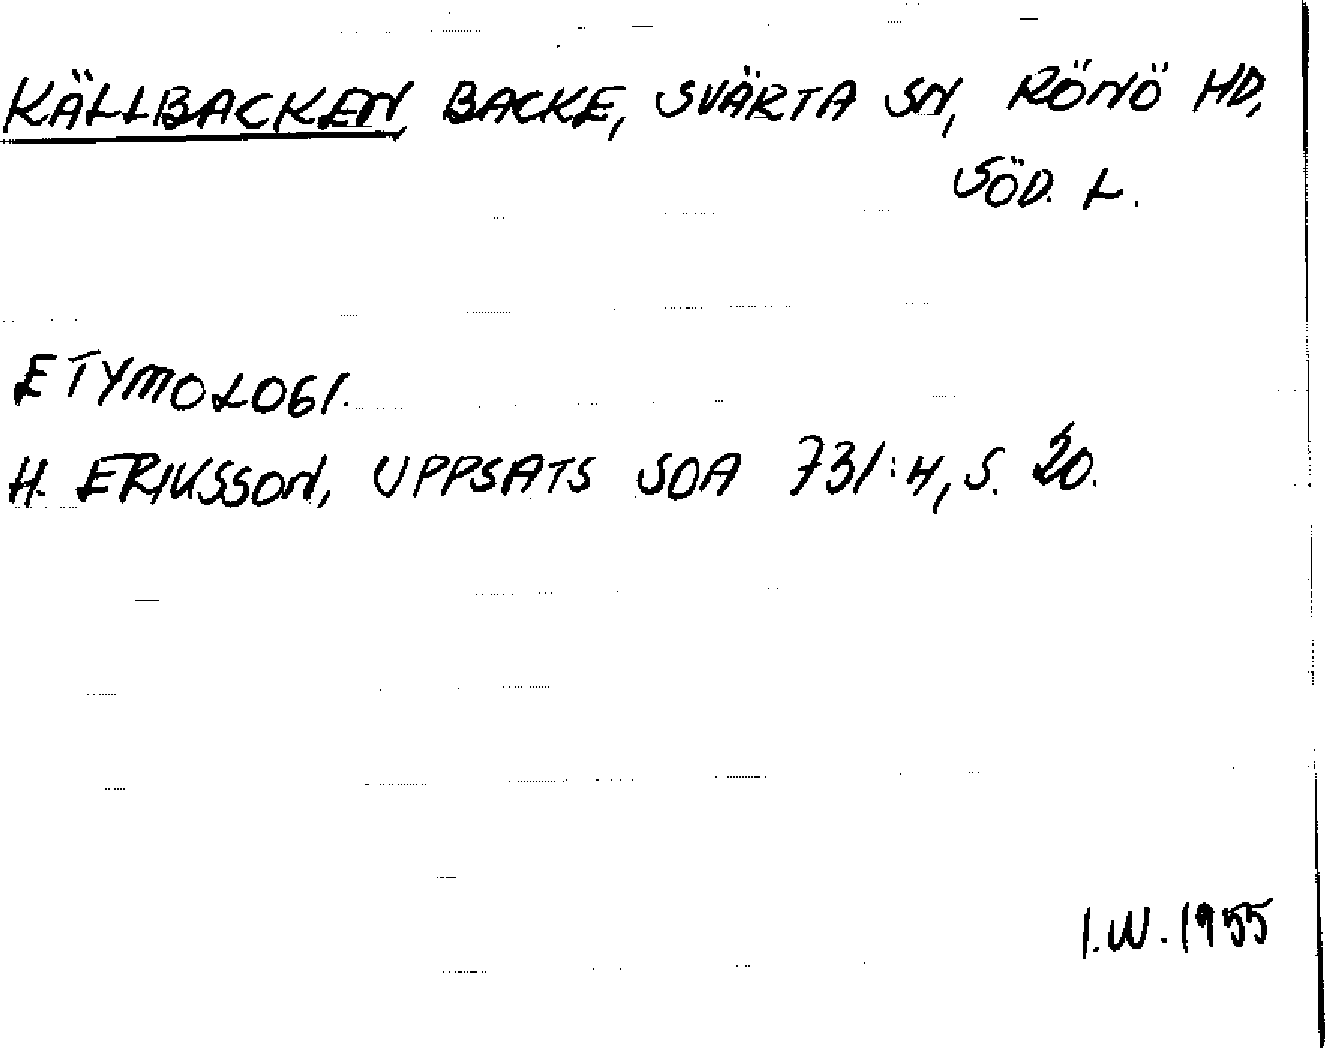 KÄLLBACKEN, BACKE, SVÄRTA SN, RÖNÖ HD,
SÖD. L.
ETYMOLOGI.
H. ERIKSSON, UPPSATS SOA 731:4, S. 20.
I.W. 1955